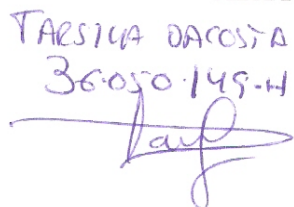 TARSICIA DACOSTA
36.050.149-H